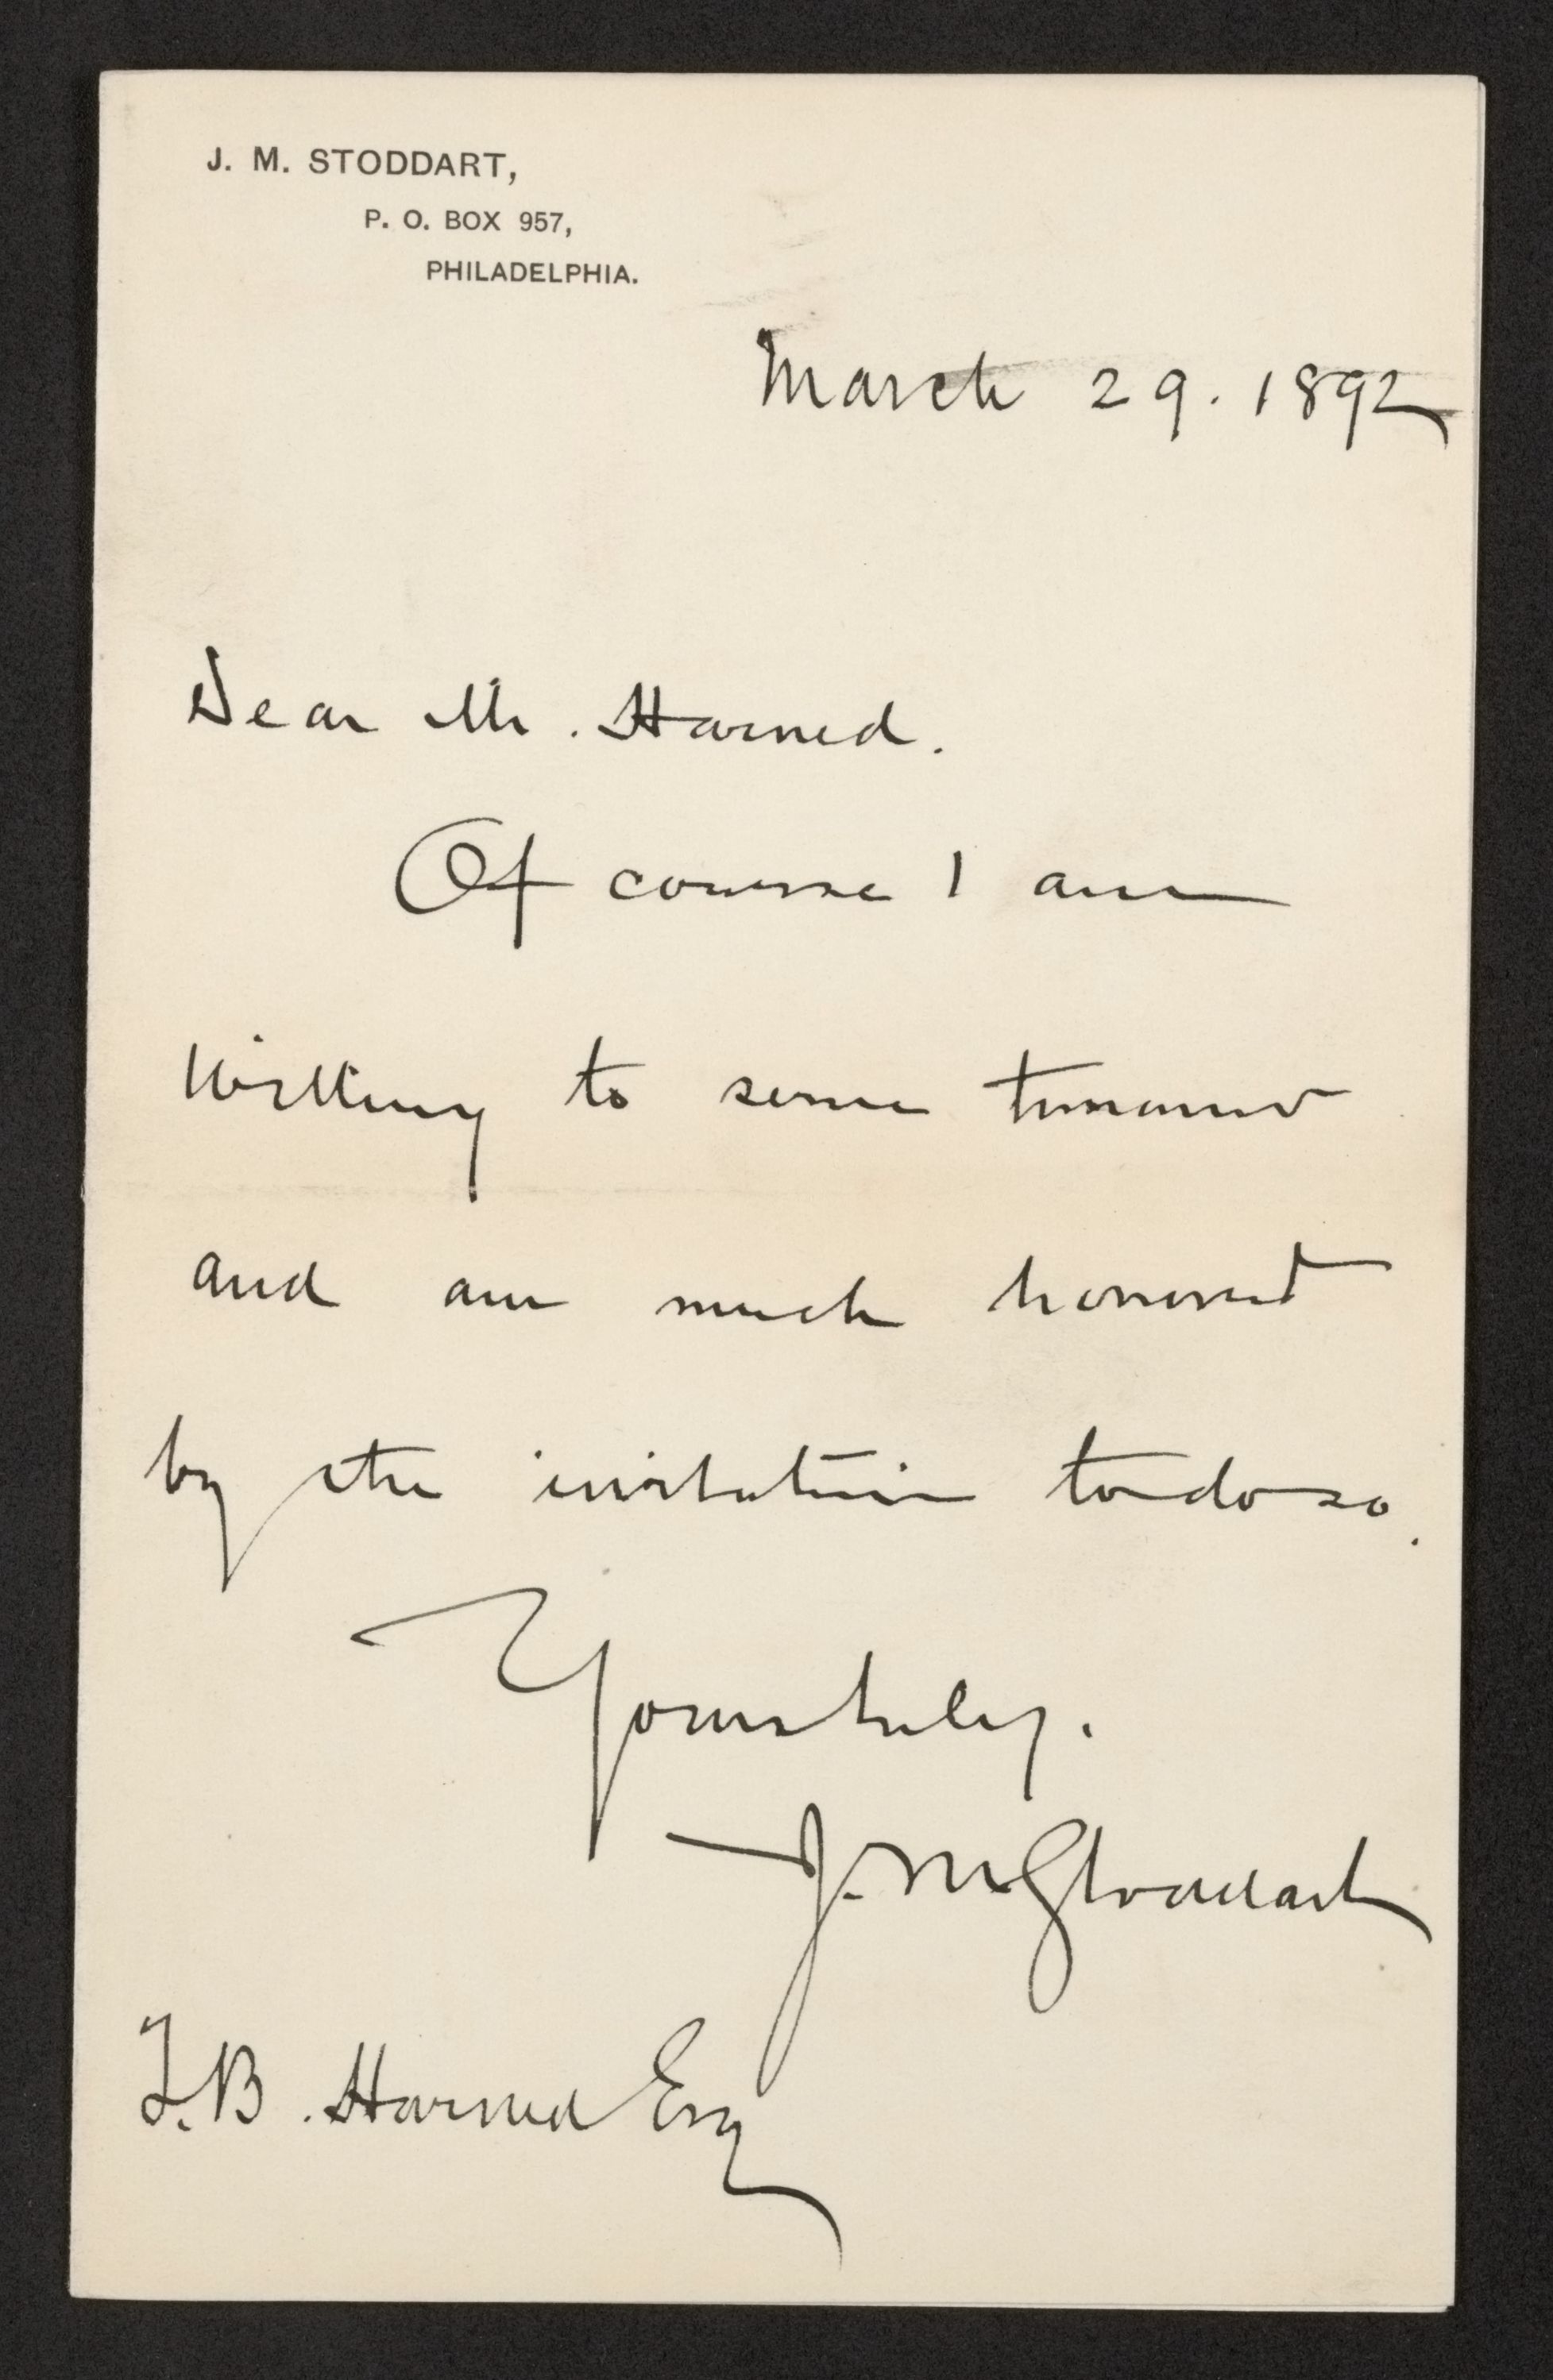 J. M. STODDART,
P. O. BOX 957,
PHILADELPHIA.
March 29. 1892
Dear Mr. Harned.
Of course I am
willing to serve tomorrow
and am much honored
by the invitation to do so.
Yours truly.
J. M Stoddart
T. B. Harned Esq